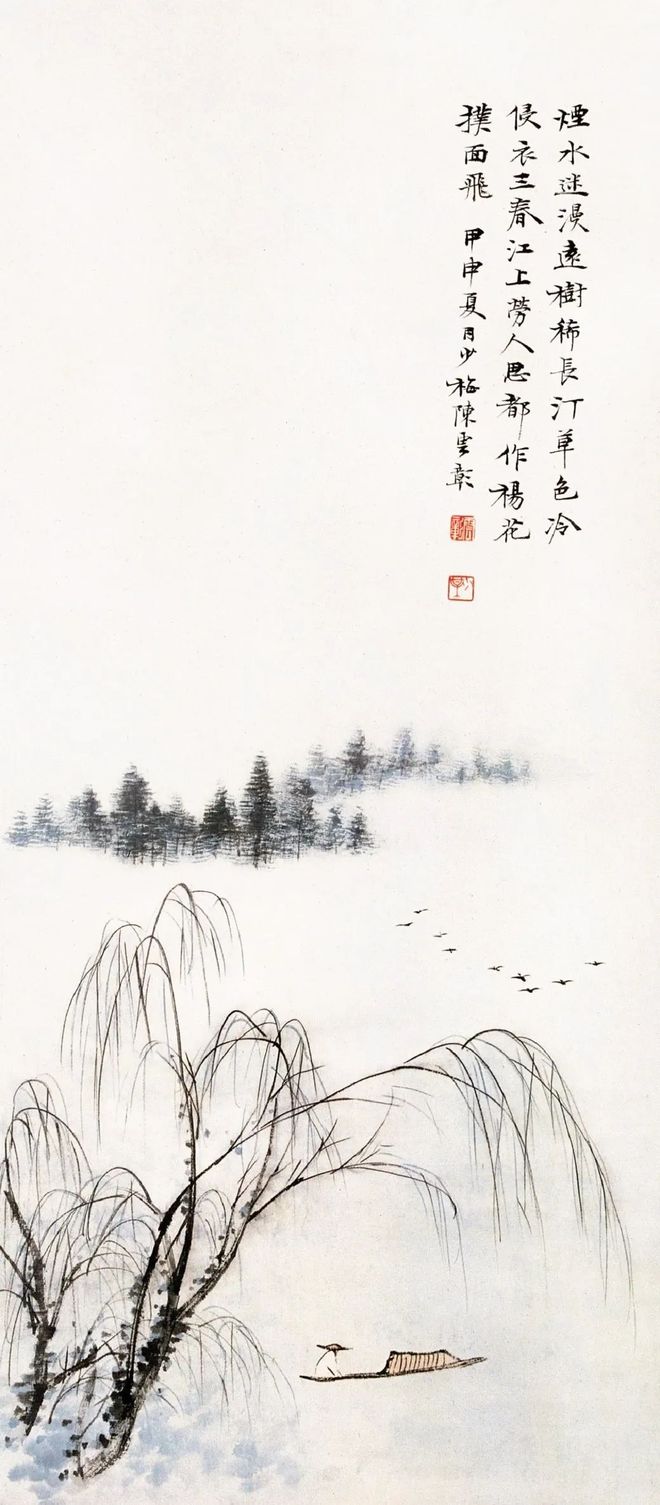 煙水迷漠遠樹稀長汀草色冷
侵衣三春江上勞人思都作楊花
撲面飛 甲申夏月少梅陳雲彰